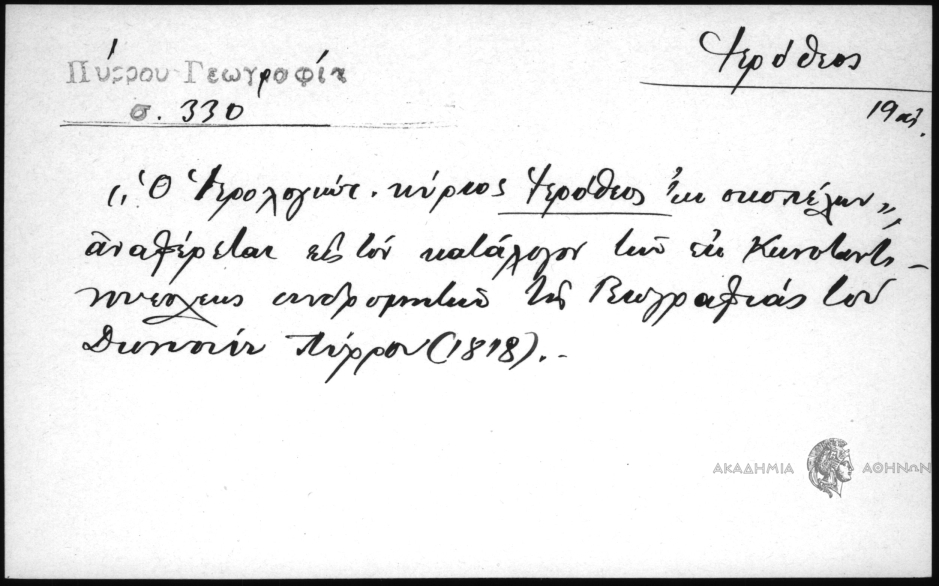 Πύρρου Γεωγραφία
σ. 330
Ἱερόθεος
19 αἰ.
„Ὁ Ἱερολογιώτ. κύριος Ἱερόθεος ἐκ σκοπέλων„
ἀναφέρεται εἰς τὸν κατάλογον τῶν ἐκ Κωνσταντι-
νουπόλεως συνδρομητῶν τῆς Γεωγραφίας τοῦ
Διονυσίου Πύρρου (1818). -
ΑΚΑΔΗΜΙΑ ΑΘΗΝΩΝ